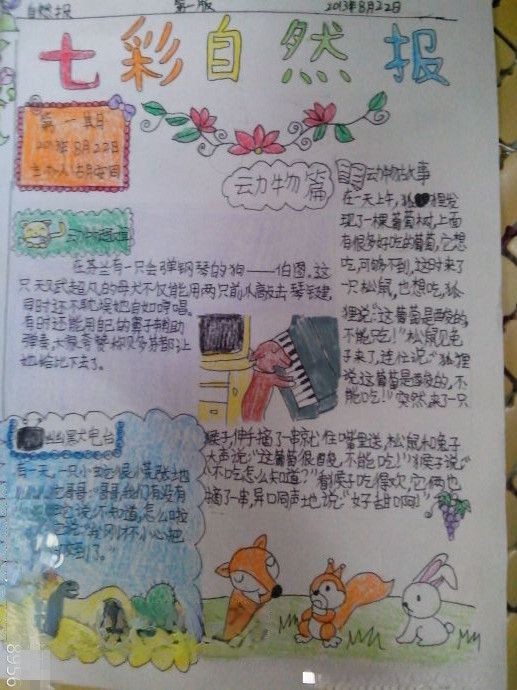 自然报 第一版 2013年8月22日
七彩自然报
第一期
2013年8月22日
动物篇
动物故事
在一天上午,狐狸发
现了一棵葡萄树,上面
有很多好吃的葡萄,它想
吃,可够不到,这时来了
一只松鼠,也想吃,狐
狸说:“这葡萄是酸的,
不能吃!”松鼠见兔
子来了,连忙说:“狐狸
说这葡萄是酸的,不
能吃!”突然来了一只
猴子,伸手摘了一串就往嘴里送,松鼠和兔子
大声说:“这葡萄很酸,不能吃!”猴子说:“
不吃怎么知道?”看猴子吃得欢,它俩也
摘了一串,异口同声地说:“好甜啊!”
在芬兰有一只会弹钢琴的狗——伯图。这
只天才超凡的母犬不仅能用两只前爪敲击琴键,
同时还不耽误她自如哼唱。
有时还能用自己的鼻子辅助
弹奏,大概旁赞称贝多芬都让
她给比下去了。
幽默大电台
有一天,一只小蛇很慌张地
问它哥哥:“哥哥我们有没有
毒?”它说:“不知道,怎么啦
”它说:“我刚才不小心把
了。”
8956